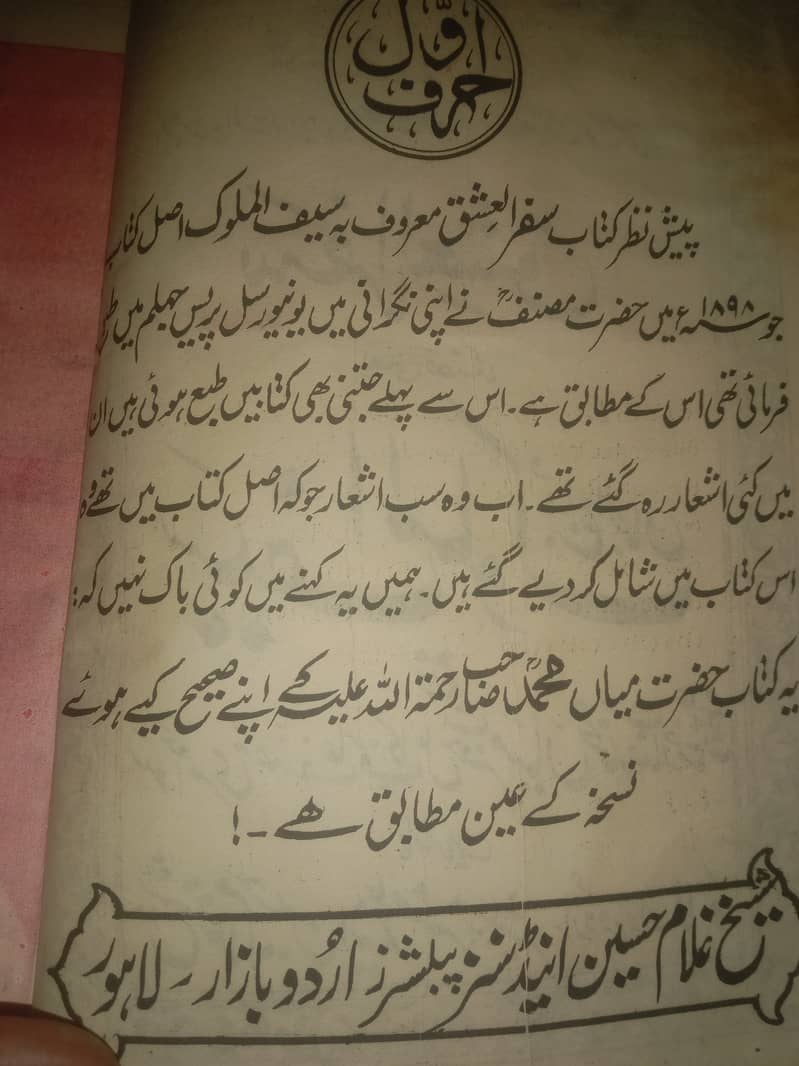 حرف اوّل
پیش نظر کتاب سفر العِشق معروف بہ سیف الملوک اصل کتاب
جو ۱۸۹۸ء میں حضرت مصنفؒ نے اپنی نگرانی میں یونیورسل پریس جہلم میں
فرمائی تھی اس کے مطابق ہے۔ اس سے پہلے جتنی بھی کتابیں طبع ہوئی ہیں ان
میں کئی اشعار رہ گئے تھے۔ اب وہ سب اشعار جو کہ اصل کتاب میں تھے وہ
اس کتاب میں شامل کر دیے گئے ہیں۔ ہمیں یہ کہنے میں کوئی باک نہیں کہ:
یہ کتاب حضرت میاں محمدؒ صاحب رحمۃ اللہ علیہ کے اپنے صحیح کیے ہوئے
نسخہ کے عین مطابق ھے ۔!
شیخ غلام حسین اینڈ سنز پبلشرز اُردو بازار ۔ لاہور